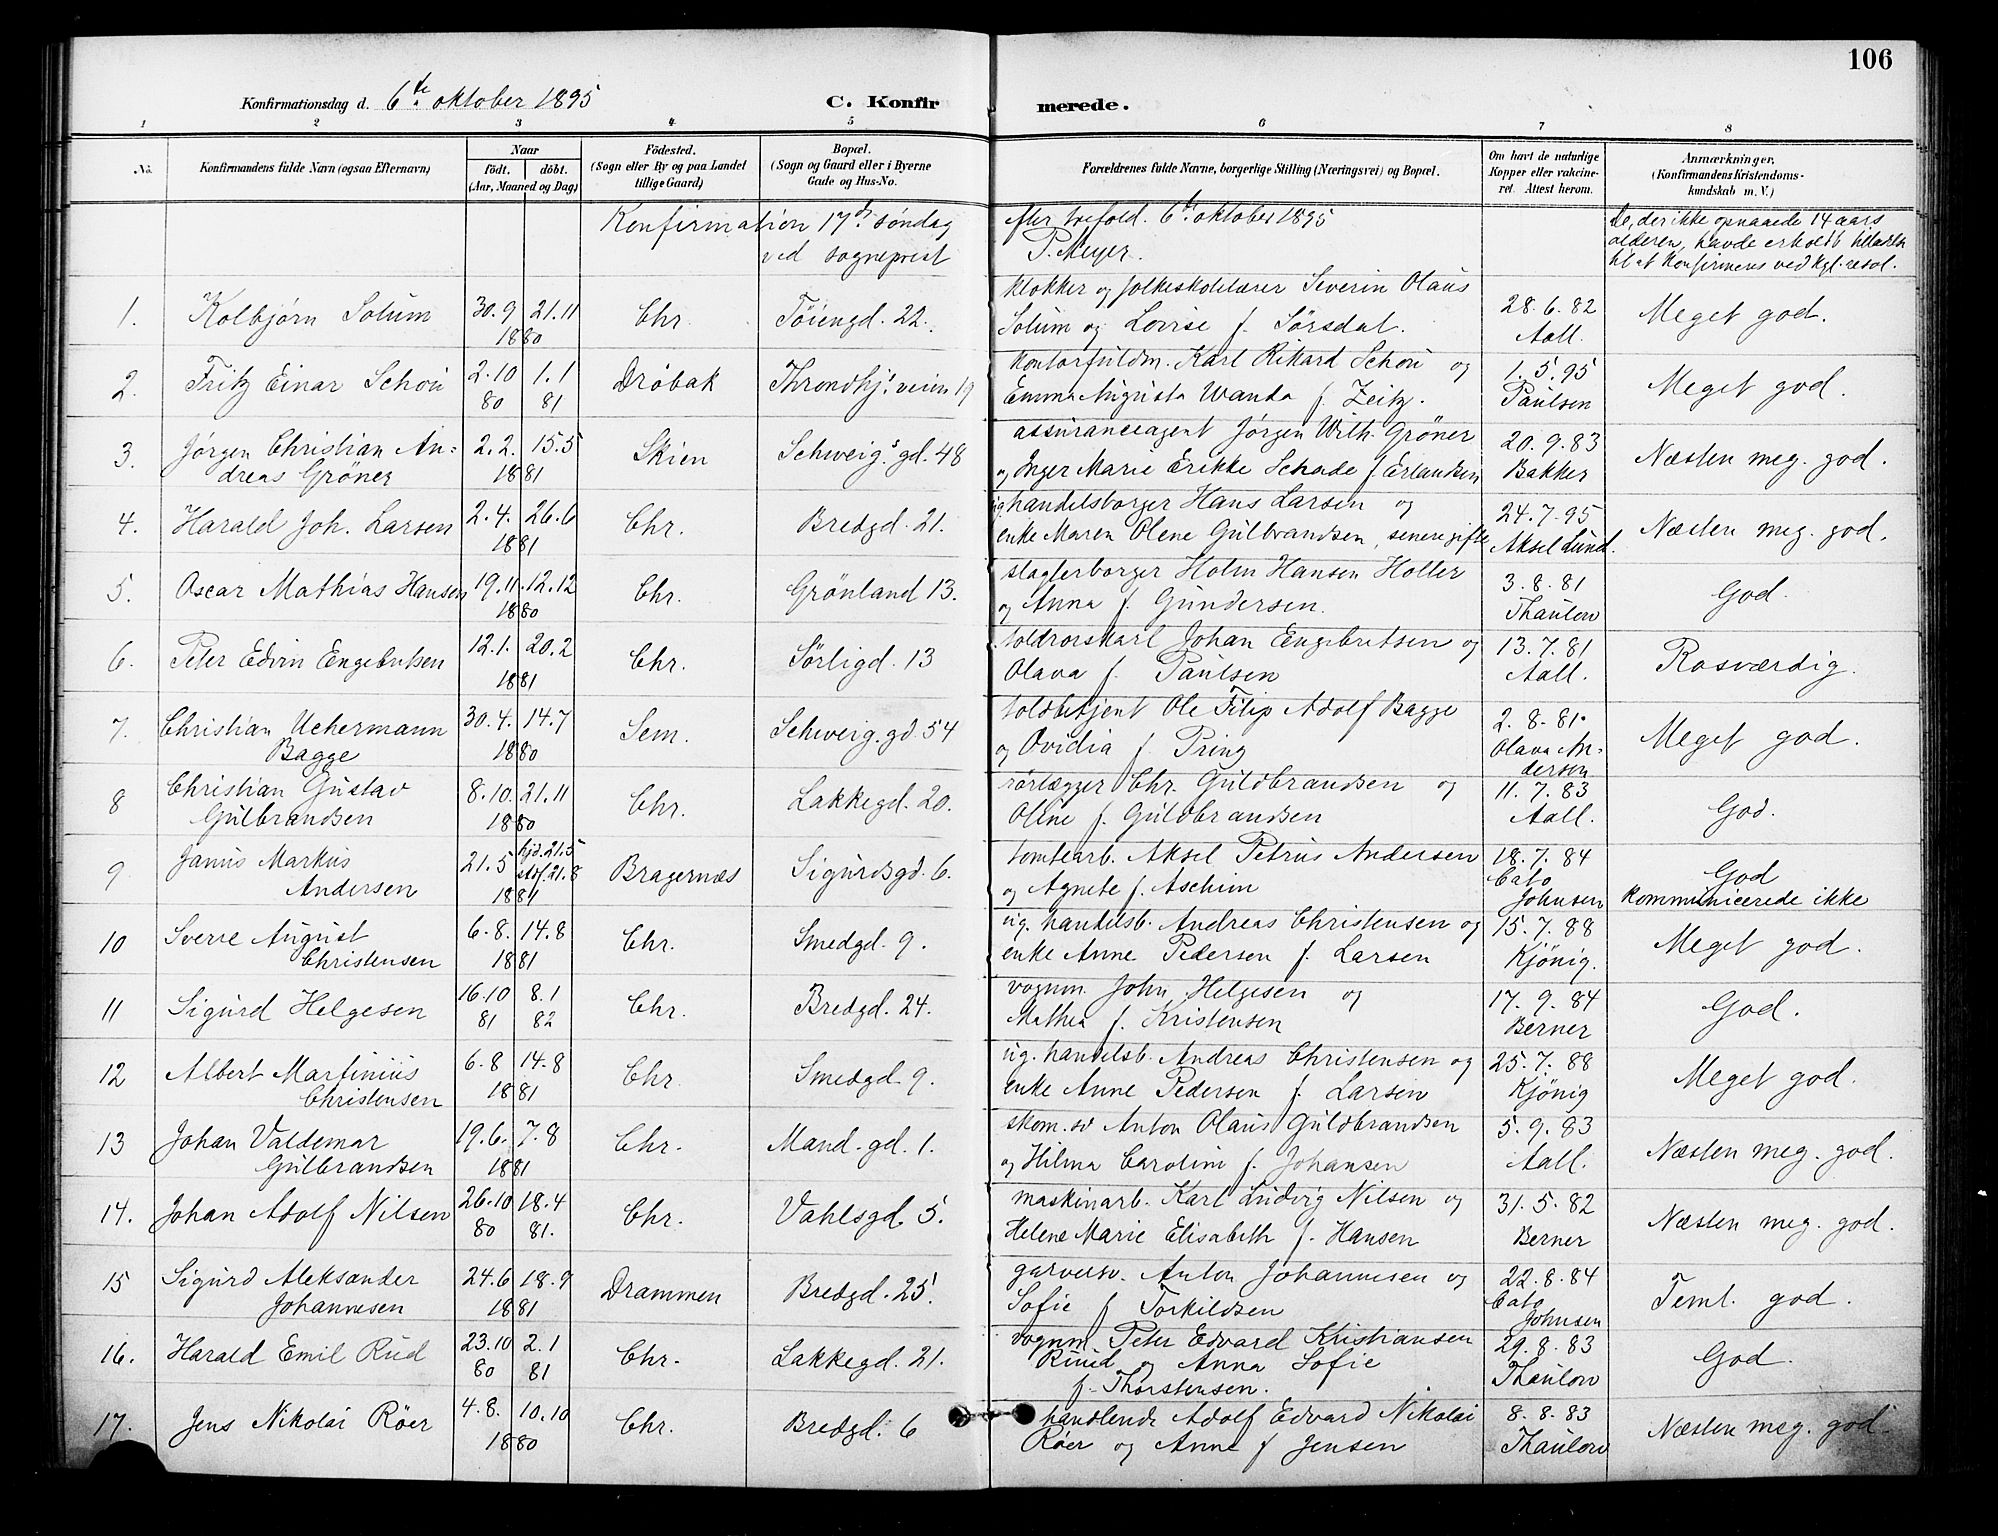 106
Konfirmationsdag d. 6te oktober 1895
C. Konfirmerede.
1 2 3 4 5 6 7 8
No. Konfirmandens fulde Navn (ogsaa Efternavn)
Naar født. døbt. (Aar, Maaned og Dag)
Fødested. (Sogn eller By og paa Landet tillige Gaard)
Bopæl. (Sogn og Gaard eller i Byerne Gade og Hus-No.
Forældrenes fulde Navne, borgerlige Stilling (Næringsvei) og Bopæl.
Om havt de naturlige Kopper eller vakcineret. Attest herom.
Anmærkninger. (Konfirmandens Kristendomskundskab m. V.)
Konfirmation 17de søndag efter trefold. 6te oktober 1895
ved sogneprest P. Meyer.
De, der ikke opnaaede 14 aars
alderen, havde erholdt
til at konfirmeres ved kgl. resol.
1. Kolbjørn Solum 30.9 21.11 1880 Chr. Töiengd. 22. klokker og folkeskolelærer Severin Olaus
Solum og Lovise f. Sørsdal. 28.6.82 Aall. Meget god.
2. Fritz Einar Schou 2.10 80 1.1 81 Dröbak Throndhj.veien 19 kontorfuldm. Karl Rikard Schou og
Emma Augusta Wanda f. Zeitz. 1.5.95 Paulsen Meget god.
3. Jørgen Christian An-
dreas Gröner 2.2. 15.5 1881 Skien Schweig.s gd. 48 assuranceagent Jørgen Wilh. Gröner
og Inger Marie Erikke Schade f. Erlandsen 20.9.83 Bakker Næsten meg. god.
4. Harald Joh. Larsen 2.4. 26.6 1881 Chr. Bredgd. 21. handelsborger Hans Larsen og
enke Maren Olene Gulbrandsen, senere gifte 24.7.95 Aksel Lund. Næsten meg. god.
5. Oscar Mathias Hansen 19.11. 12.12 1880 Chr. Grönland 13. slagterborger Holm Hansen Holter
og Anna f. Gundersen. 3.8.81 Thaulow God.
6. Peter Edvin Engebritsen 12.1. 20.2 1881 Chr. Sörligd. 13 toldrorskarl Johan Engebritsen og
Olava f. Paulsen 13.7.81 Aall. Rosværdig.
7. Christian Uchermann
Bagge 30.4. 14.7 1880 Sem. Schweig. gd. 54 toldbetjent Ole Filip Adolf Bagge
og Ovidia f. Pring 2.8.81. Olava An-
dersen Meget god.
8 Christian Gustav
Gulbrandsen 8.10. 21.11 1880 Chr. Lakkegd. 20. rörlægger Chr. Guldbrandsen og
Oline f. Guldbrandsen 11.7.83 Aall. God.
9. Janus Markus
Andersen 21.5 hjd. 21.5 stdf. 21.8 1881 Bragernæs Sigurdsgd. 6. tomtearb. Aksel Petrus Andersen
og Agnete f. Aschim 18.7.84 Cato
Johnsen God
Kommunicerede ikke
10 Sverre August
Christensen 6.8. 14.8 1881 Chr. Smedgd. 9. ug. handelsb. Andreas Christensen og
enke Anne Pedersen f. Larsen 15.7.88 Kjönig. Meget god.
11 Sigurd Helgesen 16.10 81 8.1 82 Chr. Bredgd. 24. vognm. John Helgesen og
Mathea f. Kristensen 17.9.84 Berner God.
12 Albert Martinius
Christensen 6.8 14.8 1881 Chr. Smedgd. 9. ug. handelsb. Andreas Christensen og
enke Anne Pedersen f. Larsen 25.7.88 Kjönig Meget god.
13 Johan Valdemar
Gulbrandsen 19.6. 7.8 1881 Chr. Mand. gd. 1. skom.sv Anton Olaus Guldbrandsen
og Hilma Caroline f. Johansen 5.9.83 Aall. Næsten meg. god.
14. Johan Adolf Nilsen 26.10 80 18.4 81. Chr. Vahlsgd. 5. maskinarb. Karl Ludvig Nilsen og
Helene Marie Elisabeth f. Hansen 31.5.82 Berner Næsten meg. god.
15 Sigurd Aleksander
Johannesen 24.6 18.9 1881 Drammen Bredgd. 25. garversv. Anton Johannesen og
Sofie f Torkildsen 22.8.84 Cato
Johnsen Teml. god.
16. Harald Emil Rud 23.10 80 2.1 81 Chr. Lakkegd. 21. vognm. Peter Edvard Kristiansen
Ruud og Anna Sofie
f. Thorstensen. 29.8.83 Thaulow God.
17. Jens Nikolai Röer 4.8. 10.10 1880 Chr. Bredgd. 6 handlende Adolf Edvard Nikolai
Röer og Anne f Jensen 8.8.83 Thaulow Næsten meg. god